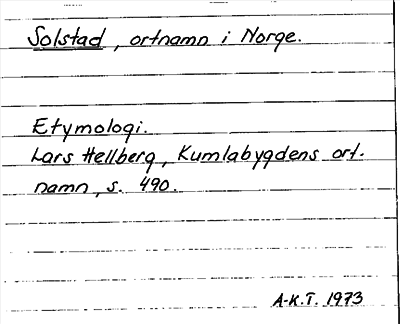 Solstad, ortnamn i Norge.
Etymologi.
Lars Hellberg, Kumlabygdens ort-
namn, s. 490.
A-K.T. 1973